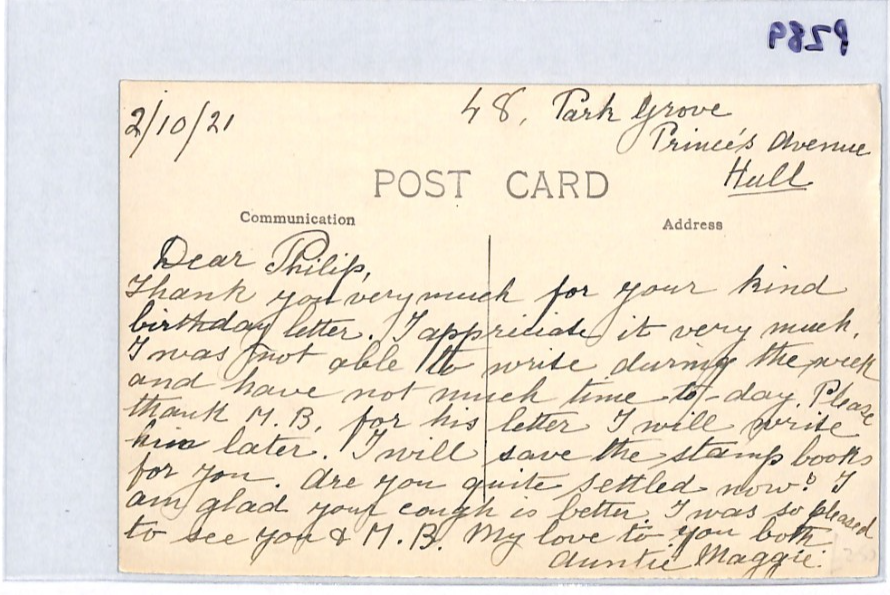 P289
2/10/21
48, Park Grove
Prince's Avenue
Hull
POST CARD
Communication
Address
Dear Philip,
Thank you very much for your kind
birthday letter. I appriciate it very much.
I was not able to write during the week
and have not much time to-day. Please
thank M.B. for his letter I will write
him later. I will save the stamp books
for you. Are you quite settled now? I
am glad your cough is better. I was so pleased
to see you & M.B. My love to you both
Auntie Maggie.